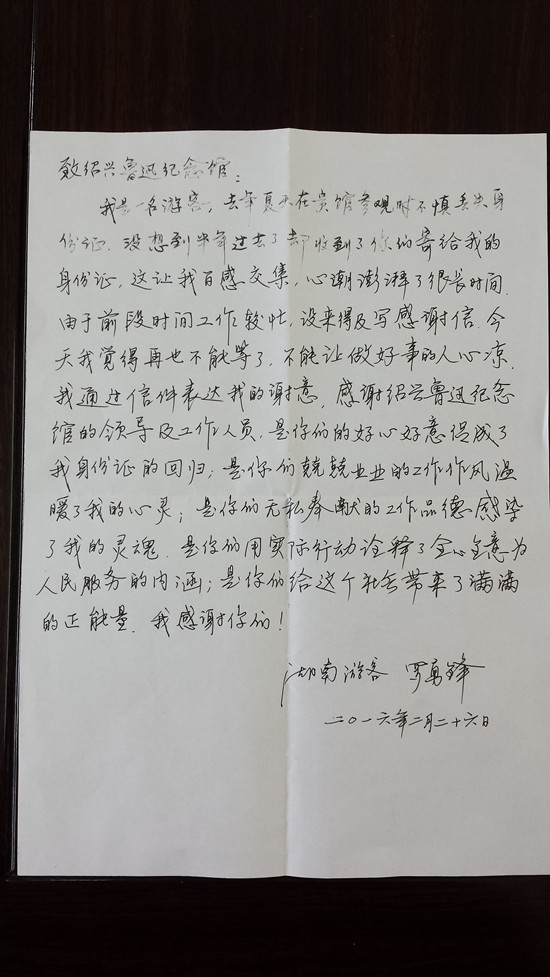 致绍兴鲁迅纪念馆：
我是一名游客，去年夏天在贵馆参观时不慎丢失身
份证．没想到半年过去了却收到了你们寄给我的
身份证，这让我百感交集，心潮澎湃了很长时间．
由于前段时间工作较忙，没来得及写感谢信．今
天我觉得再也不能等了，不能让做好事的人心凉．
我通过信件表达我的谢意．感谢绍兴鲁迅纪念
馆的领导及工作人员，是你们的好心好意促成了
我身份证的回归；是你们兢兢业业的工作作风温
暖了我的心灵；是你们无私奉献的工作品德感染
了我的灵魂．是你们用实际行动诠释了全心全意为
人民服务的内涵；是你们给这个社会带来了满满
的正能量．我感谢你们！
湖南游客 罗勇锋
二〇一六年二月二十六日